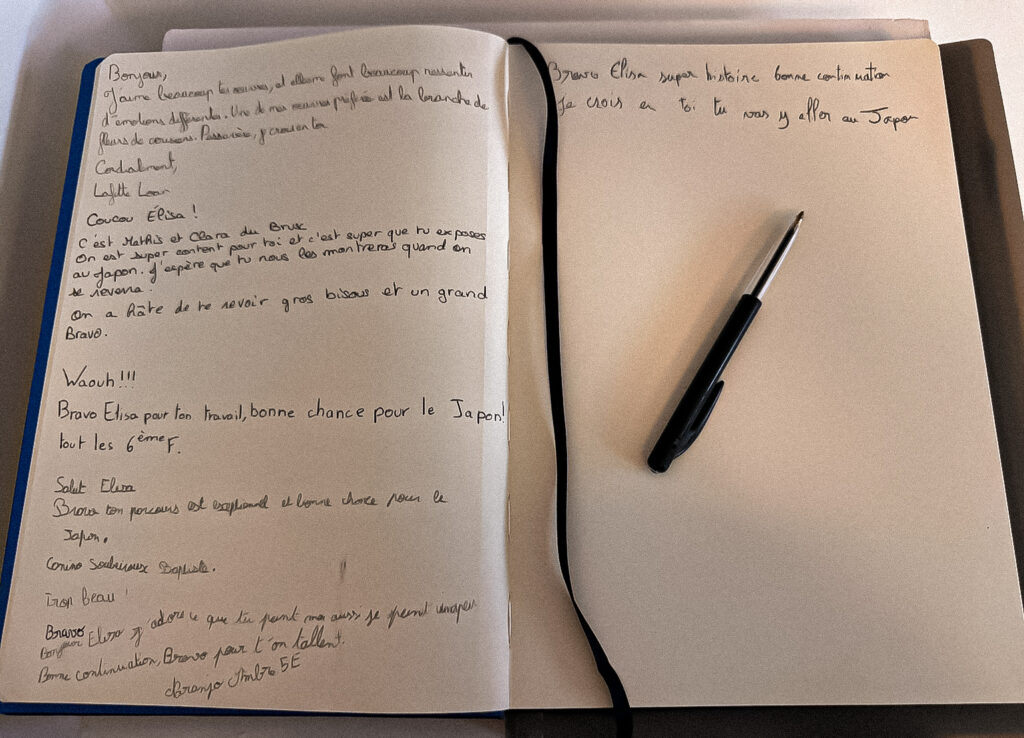 Bonjour,
J'aime beaucoup tes oeuvres, et elle me font beaucoup ressentir
d'émotions différentes. Une de mes oeuvres préférée est la branche de
fleurs de cerisiers. Persévère, y crois en toi
Cordialement,
Lafitte Loan
Coucou Élisa !
C'est Mathis et Clara du Brux
On est super content pour toi et c'est super que tu exposes
au Japon. J'espère que tu nous les montreras quand on
te reverra.
On a hâte de te revoir gros bisous et un grand
Bravo.
Waouh!!!
Bravo Elisa pour ton travail, bonne chance pour le Japon!
tout les 6ème F.
Salut Elisa
Bravo ton parcours est exeptionnel et bonne chance pour le
Japon.
Baptiste.
Trop beau !
Bravo
Bonjour Elisa j'adore ce que tu peint moi aussi je peint
Bonne continuation, Bravo pour t'on tallent.
Ambre 5E
Bravo Elisa super histoire bonne continuation
Je crois en toi tu vas y aller au Japon